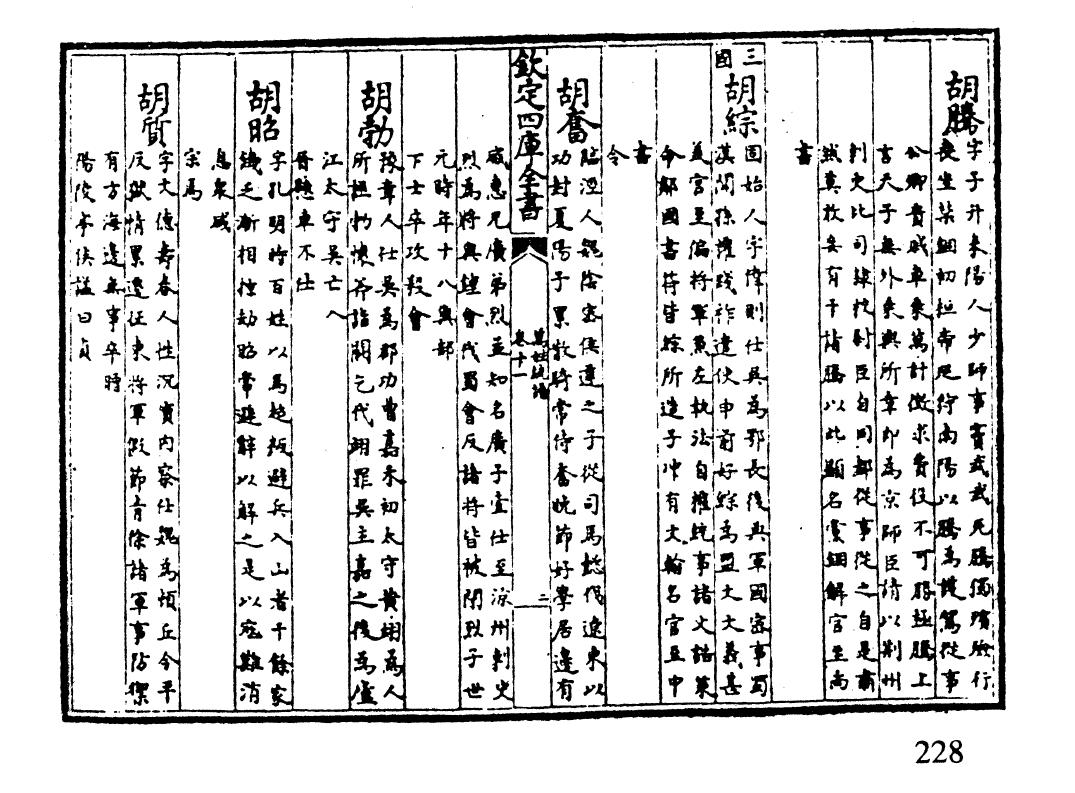 胡騰
字子升耒陽人少師事竇武武死騰獨殯殮行
喪坐禁錮初桓帝廵狩南陽以騰為護駕從事
公卿貴戚車乘萬計徵求費役不可勝極騰上
言天子無外乘輿所幸即為京師臣請以荆州
刺史比司隸校尉臣自同都從事從之自是肅
然莫敢妄有干請騰以此顯名黨錮解官至尚
書
三國
胡綜
固始人字偉則仕吳為鄂長後典軍國密事蜀
漢聞孫權踐祚遣使申前好綜為盟文文義甚
美官至偏將軍兼左執法自權統事諸文誥策
命鄰國書符皆綜所造子冲有文翰名官至中
書
令
胡奮
臨涇人魏陰密侯遵之子從司馬懿伐遼東以
功封夏陽子累牧將常侍奮晩節好學居邊有
欽定四庫全書
萬姓統譜
卷十一
二
威惠兄廣弟烈並知名廣子喜仕至涼州刺史
烈為將與鍾會伐蜀會反諸將皆被閉烈子世
元時年十八與都
下士卒攻殺會
胡勃
豫章人仕吳為郡功曹嘉禾初太守黄翊為人
所枉勃懷斧詣闕乞代翊罪吳主嘉之後為廬
江太守吳亡入
晉懸車不仕
胡昭
字孔明時百姓以馬超叛避兵入山者千餘家
饑乏漸相擄劫昭常遜辭以解之是以寇難消
息衆咸
宗焉
胡質
字文德壽春人性沉實内察仕魏為頓丘令平
反獄情累遷征東將軍假節青徐諸軍事防禦
有方海邊無事卒時
陽陵亭侯諡曰貞
228